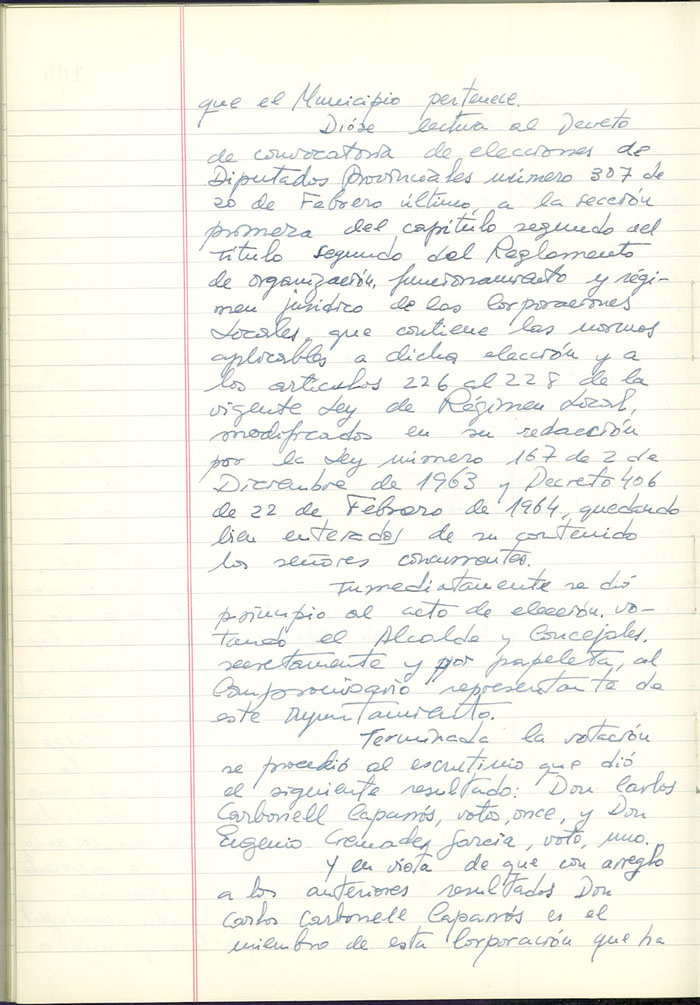 que el Municipio pertenece.
Dióse lectura al Decreto
de convocatoria de elecciones de
Diputados Provinciales número 307 de
20 de Febrero último, a la sección
primera del capítulo segundo del
Título segundo del Reglamento
de organización, funcionamiento y régi-
men jurídico de las Corporaciones
Locales, que contiene las normas
aplicables a dicha elección y a
los artículos 226 al 228 de la
vigente Ley de Régimen Local,
modificados en su redacción
por la Ley número 167 de 2 de
Diciembre de 1963 y Decreto 406
de 22 de Febrero de 1964, quedando
bien enterados de su contenido
los señores concurrentes.
Inmediatamente se dió
principio al acto de elección, vo-
tando el Alcalde y Concejales,
secretamente y por papeleta, al
Compromisario representante de
este Ayuntamiento.
Terminada la votación
se procedió al escrutinio que dió
el siguiente resultado: Don Carlos
Carbonell Caparrós, votos, once, y Don
Eugenio Cremades García, voto, uno.
Y en vista de que con arreglo
a los anteriores resultados Don
Carlos Carbonell Caparrós es el
miembro de esta Corporación que ha